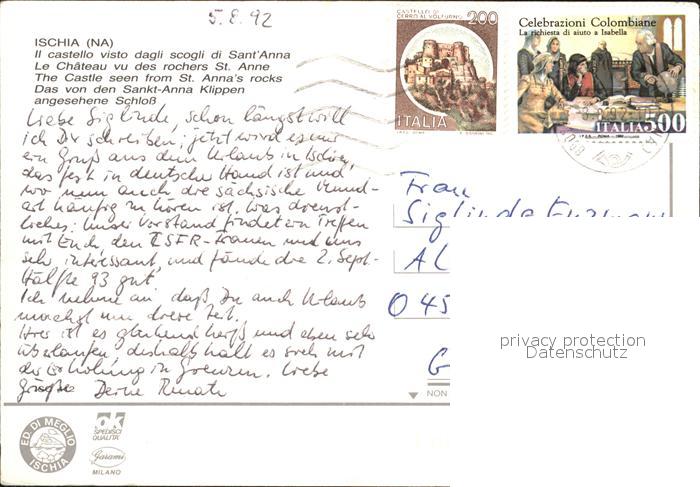 5.8.92
ISCHIA (NA)
Il castello visto dagli scogli di Sant'Anna
Le Château vu des rochers St. Anne
The Castle seen from St. Anna's rocks
Das von den Sankt-Anna Klippen
angesehene Schloß
Liebe Siglinde, schon längst will
ich Dir schreiben; jetzt wird es nur
ein Gruß aus dem Urlaub in Ischia,
das fest in deutscher Hand ist und
wo nun auch die sächsische Mund-
art häufig zu hören ist. Was dienst-
liches: Unser Vorstand findet ein Treffen
mit Euch den Frauen und uns
sehr interessant und fände die 2. Sept.-
Hälfte 93 gut.
Ich nehme an daß Du auch Urlaub
machst um diese Zeit.
Hier ist es glühend heiß und eben sehr
überlaufen, deshalb hält es sich mit
der Erholung in Grenzen. Liebe
Grüße Deine Renate
CASTELLO DI
CERRO AL VOLTURNO
200
ITALIA
Celebrazioni Colombiane
La richiesta di aiuto a Isabella
ITALIA 500
Frau
Siglinde
AL
O 45
G
privacy protection
Datenschutz
NON
ED. DI MEGLIO
ISCHIA
ok
SPEDISCI
QUALITÀ
Garami
MILANO